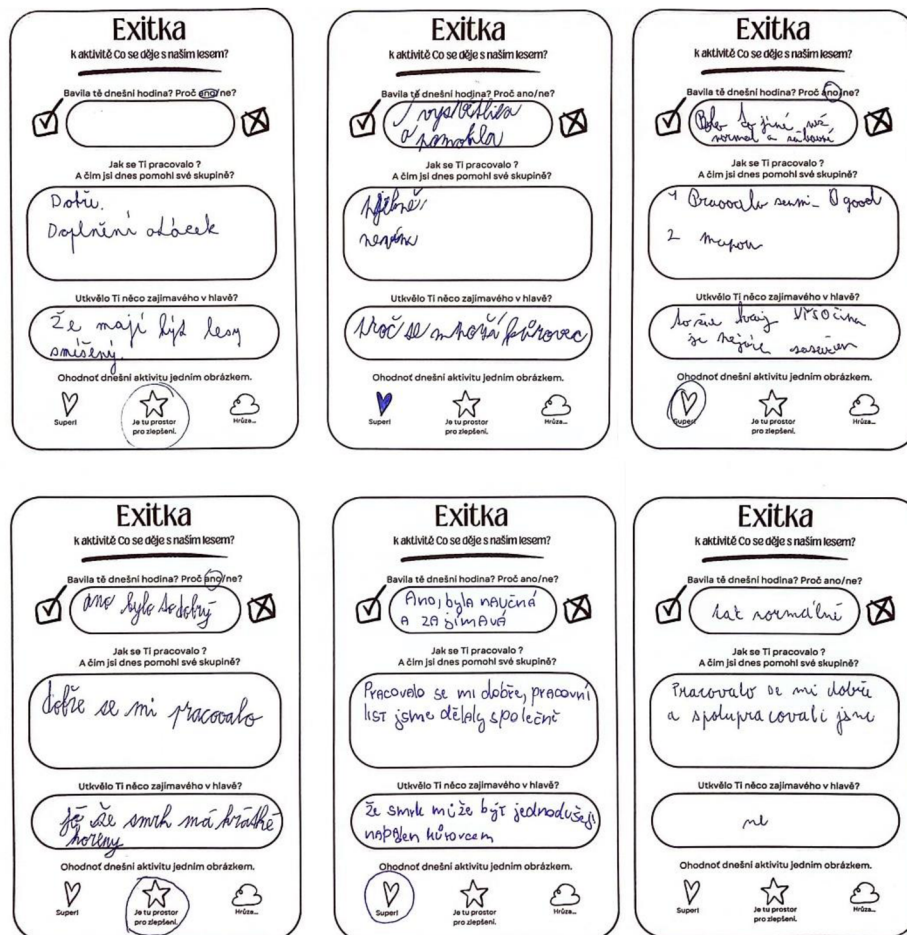 Exitka
k aktivitě Co se děje s naším lesem?
Bavila tě dnešní hodina? Proč ano/ne?
Jak se Ti pracovalo ?
A čím jsi dnes pomohl své skupině?
Dobře.
Doplnění otáček
Utkvělo Ti něco zajímavého v hlavě?
Že mají být lesy
smíšený.
Ohodnoť dnešní aktivitu jedním obrázkem.
Super!
Je tu prostor
pro zlepšení.
Hrůza...
Exitka
k aktivitě Co se děje s naším lesem?
Bavila tě dnešní hodina? Proč ano/ne?
vysvětlila
a pomohla
Jak se Ti pracovalo ?
A čím jsi dnes pomohl své skupině?
nevím
Utkvělo Ti něco zajímavého v hlavě?
Proč se množí kůrovec
Ohodnoť dnešní aktivitu jedním obrázkem.
Super!
Je tu prostor
pro zlepšení.
Hrůza...
Exitka
k aktivitě Co se děje s naším lesem?
Bavila tě dnešní hodina? Proč ano/ne?
Bylo to jiné než
normal a
Jak se Ti pracovalo ?
A čím jsi dnes pomohl své skupině?
1 good
2 mapou
Utkvělo Ti něco zajímavého v hlavě?
to že kraj Vysočina
je nejvíce
Ohodnoť dnešní aktivitu jedním obrázkem.
Super!
Je tu prostor
pro zlepšení.
Hrůza...
Exitka
k aktivitě Co se děje s naším lesem?
Bavila tě dnešní hodina? Proč ano/ne?
ano bylo to dobrý
Jak se Ti pracovalo ?
A čím jsi dnes pomohl své skupině?
dobře se mi pracovalo
Utkvělo Ti něco zajímavého v hlavě?
že smrk má krátké
kořeny
Ohodnoť dnešní aktivitu jedním obrázkem.
Super!
Je tu prostor
pro zlepšení.
Hrůza...
Exitka
k aktivitě Co se děje s naším lesem?
Bavila tě dnešní hodina? Proč ano/ne?
Ano, byla naučná
a zajímavá
Jak se Ti pracovalo ?
A čím jsi dnes pomohl své skupině?
Pracovalo se mi dobře, pracovní
list jsme dělaly společně
Utkvělo Ti něco zajímavého v hlavě?
Že smrk může být jednodušeji
napaden kůrovcem
Ohodnoť dnešní aktivitu jedním obrázkem.
Super!
Je tu prostor
pro zlepšení.
Hrůza...
Exitka
k aktivitě Co se děje s naším lesem?
Bavila tě dnešní hodina? Proč ano/ne?
tak normálně
Jak se Ti pracovalo ?
A čím jsi dnes pomohl své skupině?
Pracovalo se mi dobře
a spolupracovali jsme
Utkvělo Ti něco zajímavého v hlavě?
ne
Ohodnoť dnešní aktivitu jedním obrázkem.
Super!
Je tu prostor
pro zlepšení.
Hrůza...